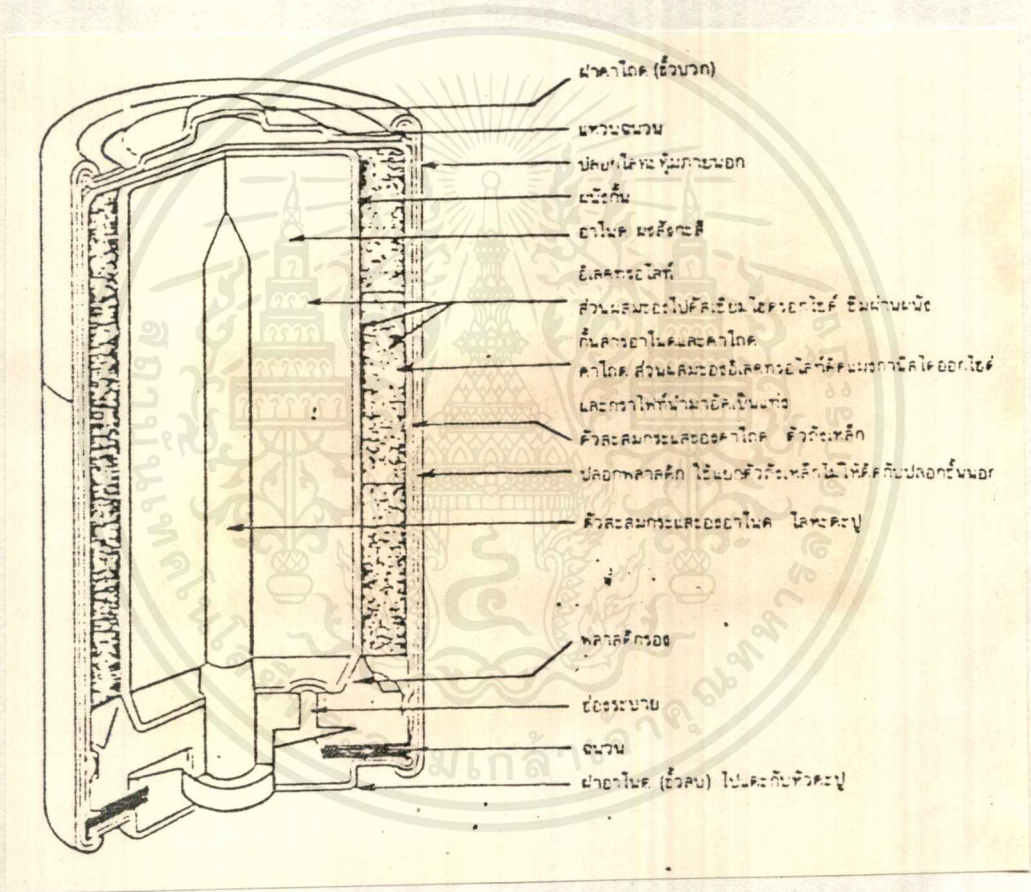 ฝาคาโถด (ขั้วบวก)
แหวนฉนวน
ปลอกโลหะหุ้มภายนอก
ผนังกั้น
อาโนด ผงสังกะสี
อิเลคทรอไลท์
ส่วนผสมของโปตัสเซียมไฮดรอกไซด์ ซึมผ่านผนัง
กั้นสารอาโนดและคาโถด
คาโถด ส่วนผสมของอิเลคทรอไลท์คือแมงกานิสไดออกไซด์
และกราไฟท์นำมาอัดเป็นแท่ง
ตัวสะสมกระแสของคาโถด ตัวถังเหล็ก
ปลอกพลาสติก ใช้แยกตัวถังเหล็กไม่ให้ติดกับปลอกชั้นนอก
ตัวสะสมกระแสของอาโนด โลหะตะปู
พลาสติกรอง
ช่องระบาย
ฉนวน
ฝาอาโนด (ขั้วลบ) ไปแตะกับหัวตะปู